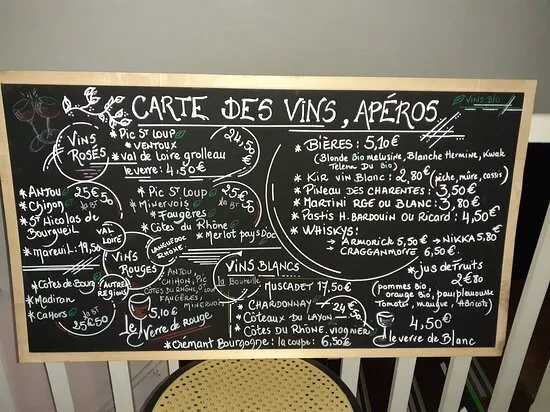 CARTE DES VINS, APÉROS
VINS BIO
VINS ROSÉS
* Pic St Loup
* VENTOUX
* Val de Loire grolleau
le verre : 4,50€
24,50€
* ANJOU
* Chinon
* St Nicolas de Bourgueil
25€50
la BT
* Mareuil : 19,50
VAL LOIRE
VINS ROUGES
* Pic St Loup
* Minervois
* Faugères
* Côtes du Rhône
* Merlot pays D'oc
25€50
la BT
LANGUEDOC RHÔNE
* Côtes de Bourg
* Madiran
* Cahors
la BT
25€50
AUTRES RÉGIONS
ANJOU,
CHINON, PIC
CÔTES DU RHÔNE, St LOUP
FAUGÈRES
MINERVOIS
5,10€
le Verre de Rouge
VINS BLANCS
La Bouteille
* MUSCADET 17,50€
* CHARDONNAY
* CÔTEAUX du LAYON
* CÔTES DU RHÔNE. viognier
24€50
* CRÉMANT BOURGOGNE : la coupe : 6,50€
* BIÈRES : 5,10€
(Blonde Bio melusine, Blanche Hermine, Kwak
Telena Du Bio)
* Kir vin Blanc : 2,80€ (pêche, mûre, cassis)
* Pineau DES CHARENTES : 3,50€
* MARTINI RGE OU BLANC : 3,80€
* Pastis H. BARDOUIN OU RICARD : 4,50€
* WHISKYS :
→ ARMORICK 5,50€ → NIKKA 5,80€
→ CRAGGANMORE 6,50€
* jus de fruits
2€80
(pommes Bio,
orange Bio, pamplemousse
Tomate, mangue, ABricots)
4,50€
le verre de Blanc